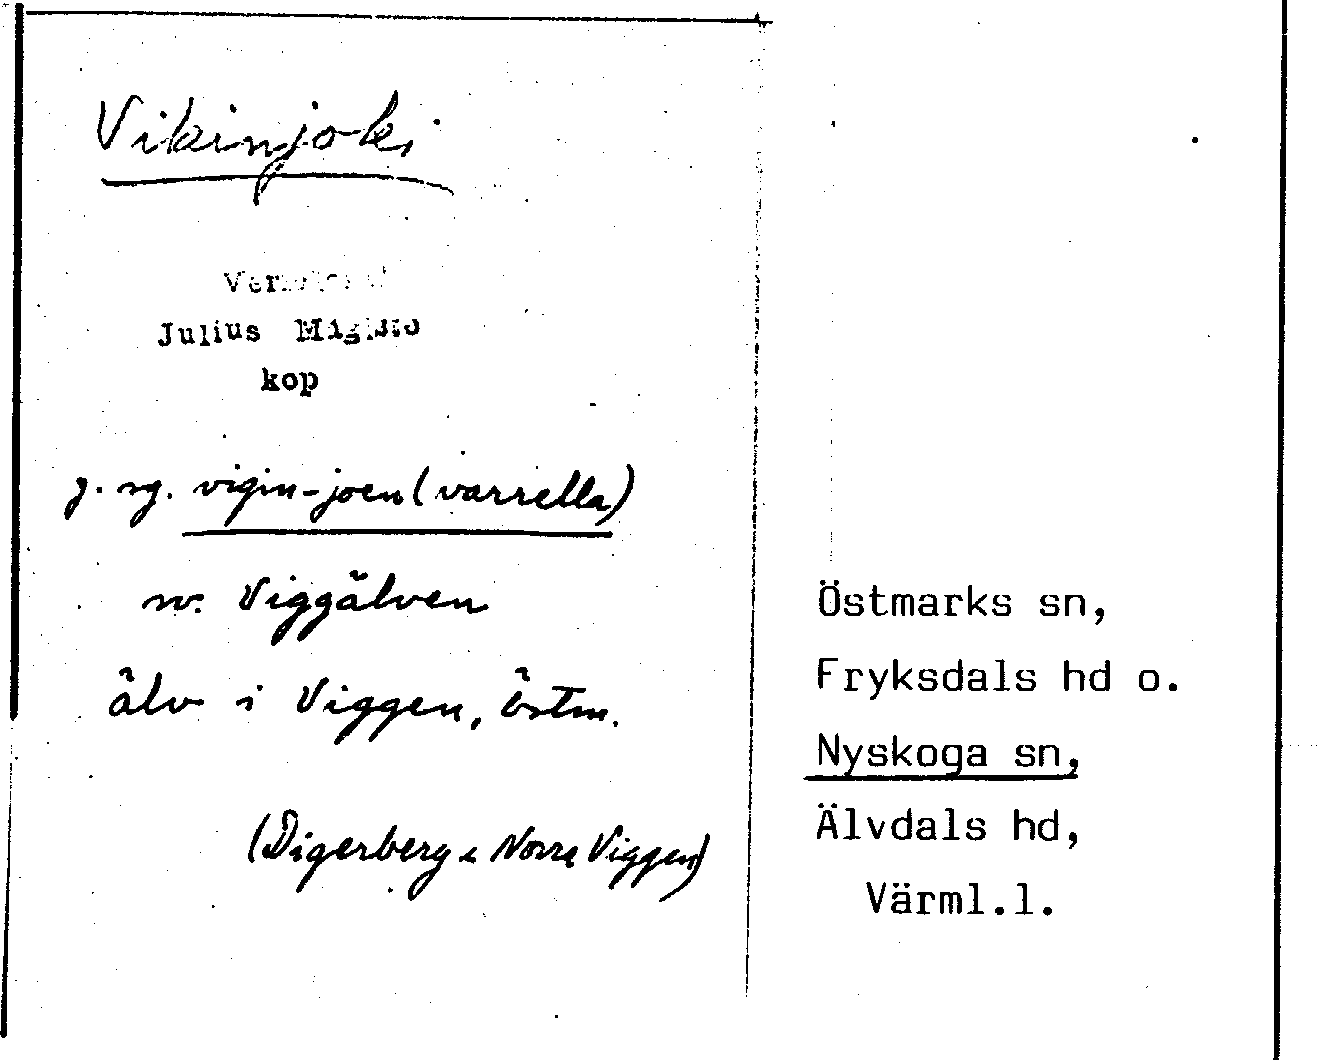 Vikinjoki
Julius Mägiste
kop
g. sg. vigin-joen (varrella)
rv. Viggälven
älv i Viggen, östm.
(Digerberg & Norra Viggen)
Östmarks sn,
Fryksdals hd o.
Nyskoga sn,
Älvdals hd,
Värml.l.